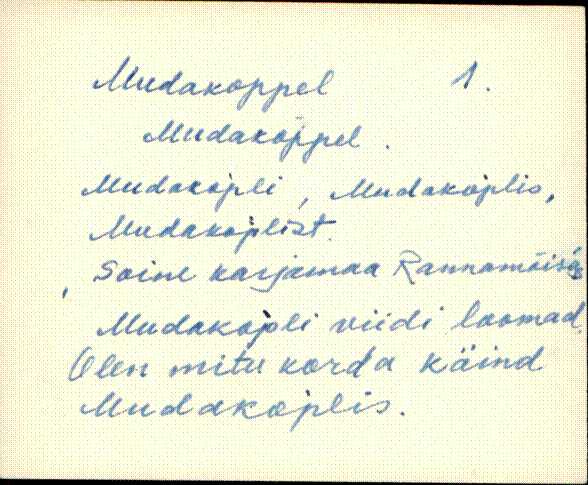 Mudakoppel 1.
Mudakoppel.
Mudakopli, Mudakoplis,
Mudakoplist.
Soine karjamaa Rannamõisas
Mudakopli viidi loomad.
Olen mitu korda käind
Mudakoplis.